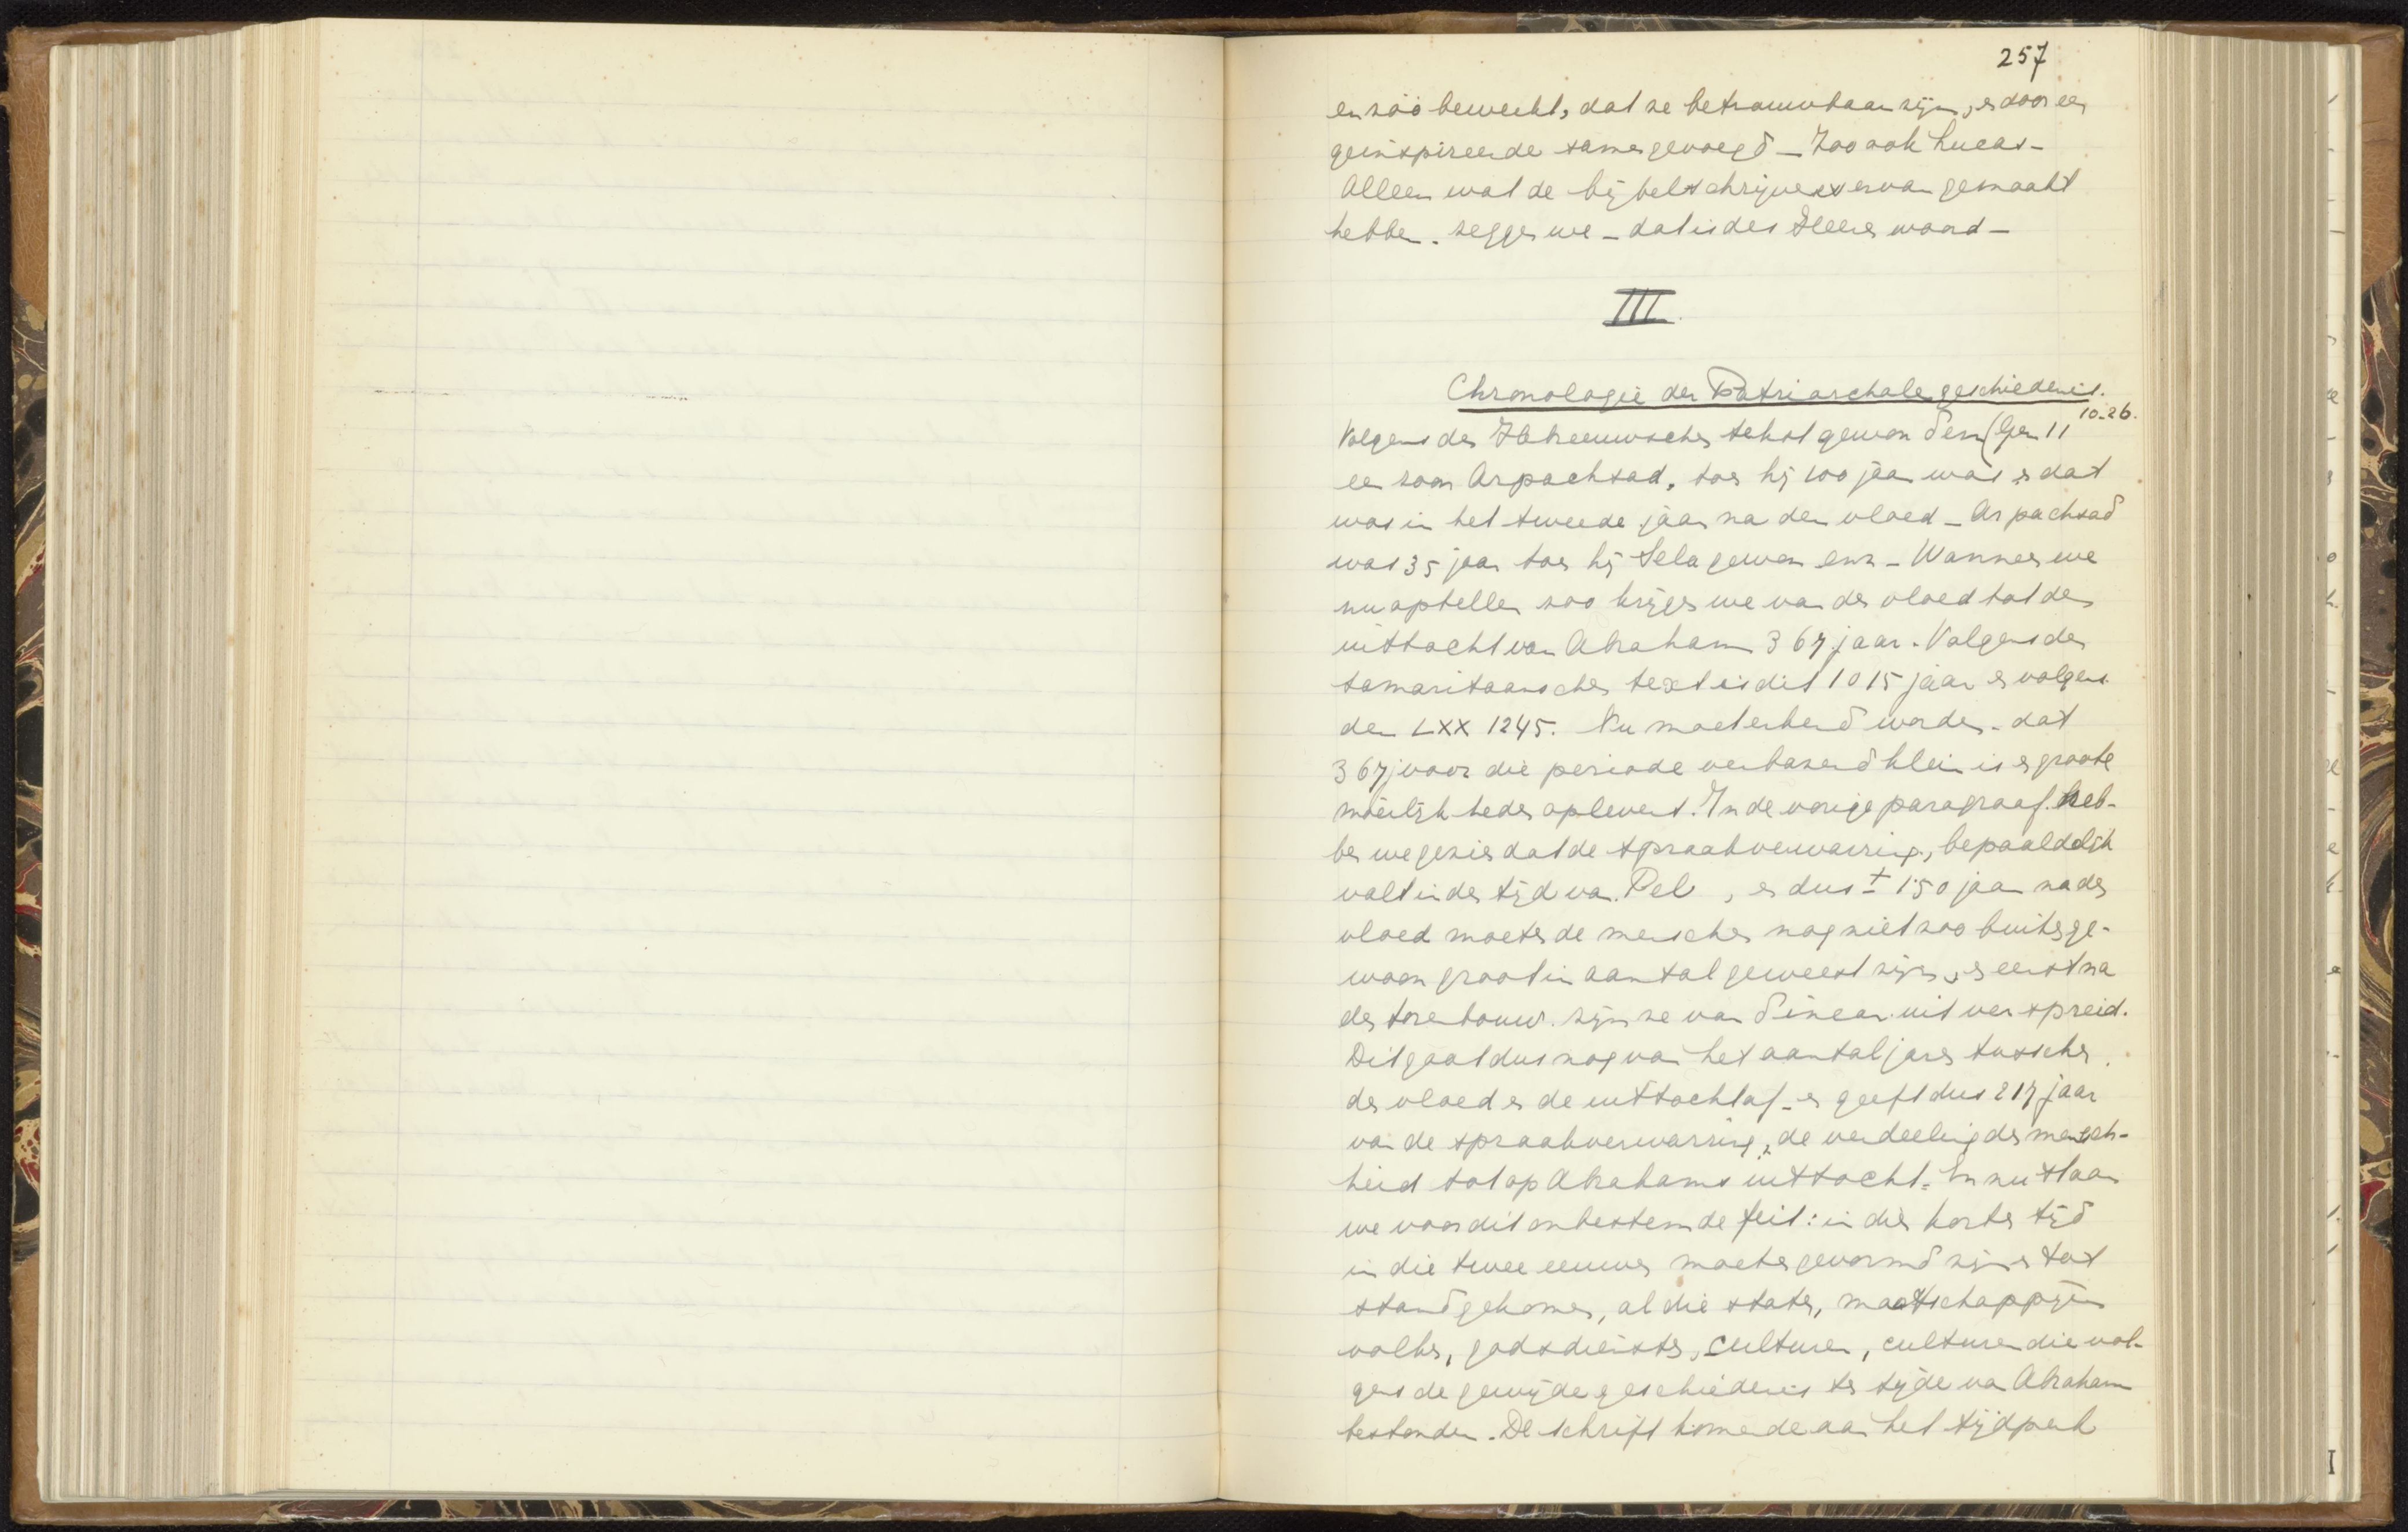 257
en zóó bewerkt, dat ze betrouwbaar zijn, en door een
geinspireerde samengevoegd – Zoo ook Lucas –
Alleen wat de bijbelschrijvers ervan gemaakt
hebben. zeggen we – dat is des Heeren woord –
III.
Chronologie der Patriarchale geschiedenis.
Volgens den Hebreeuwschen tekst gewon Sem (Gen 11 10-26.
een zoon Arpachsad, toen hij 100 jaar was en dat
was in het tweede jaar na den vloed – Arpachsad
was 35 jaar toen hij Sela gewon enz – Wanneer we
nu optellen zoo krijgen we van den vloed tot den
uittocht van Abraham 367 jaar. Volgens den
samaritaanschen text is dit 1015 jaar en volgens
den LXX 1245. Nu moet erkend worden. dat
367 j voor die periode verbazend klein is en groote
moeilijkheden oplevert. In de vorige paragraaf heb-
ben we gezien dat de spraakverwarring, bepaaldelijk
valt in den tijd van Pel , en dus ± 150 jaar na den
vloed moeten de menschen nog niet zoo buitenge-
woon groot in aantal geweest zijn, en eerst na
den torenbouw. zijn ze van Sinear uit verspreid.
Dit gaat dus nog van het aantal jaren tusschen
den vloed en de uittocht af – en geeft dus 217 jaar
van de spraakverwarring, de verdeeling der mensch-
heid tot op Abrahams uittocht. En nu staan
we voor dit onbestemde feit: in dien korten tijd
in die twee eeuwen moeten gevormd zijn en tot
stand gekomen, al die staten, maatschappijen
volken, godsdiensten, culturen, culturen die vol-
gens de gewijde geschiedenis ten tijde van Abraham
bestonden. De schrift komende aan het tijdperk